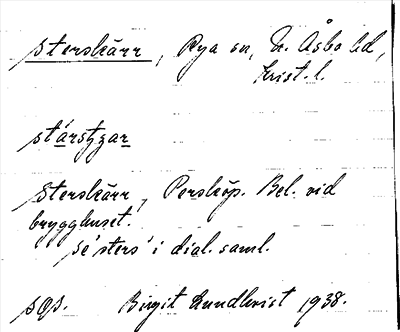 Sterskärr, Rya sn, N. Åsbo hd,
Krist. l.
Sterskärr, Perstorp. Bel. vid
brygghuset.
se 'sters' i dial. saml.
sgs. Birgit Lundkvist 1938.